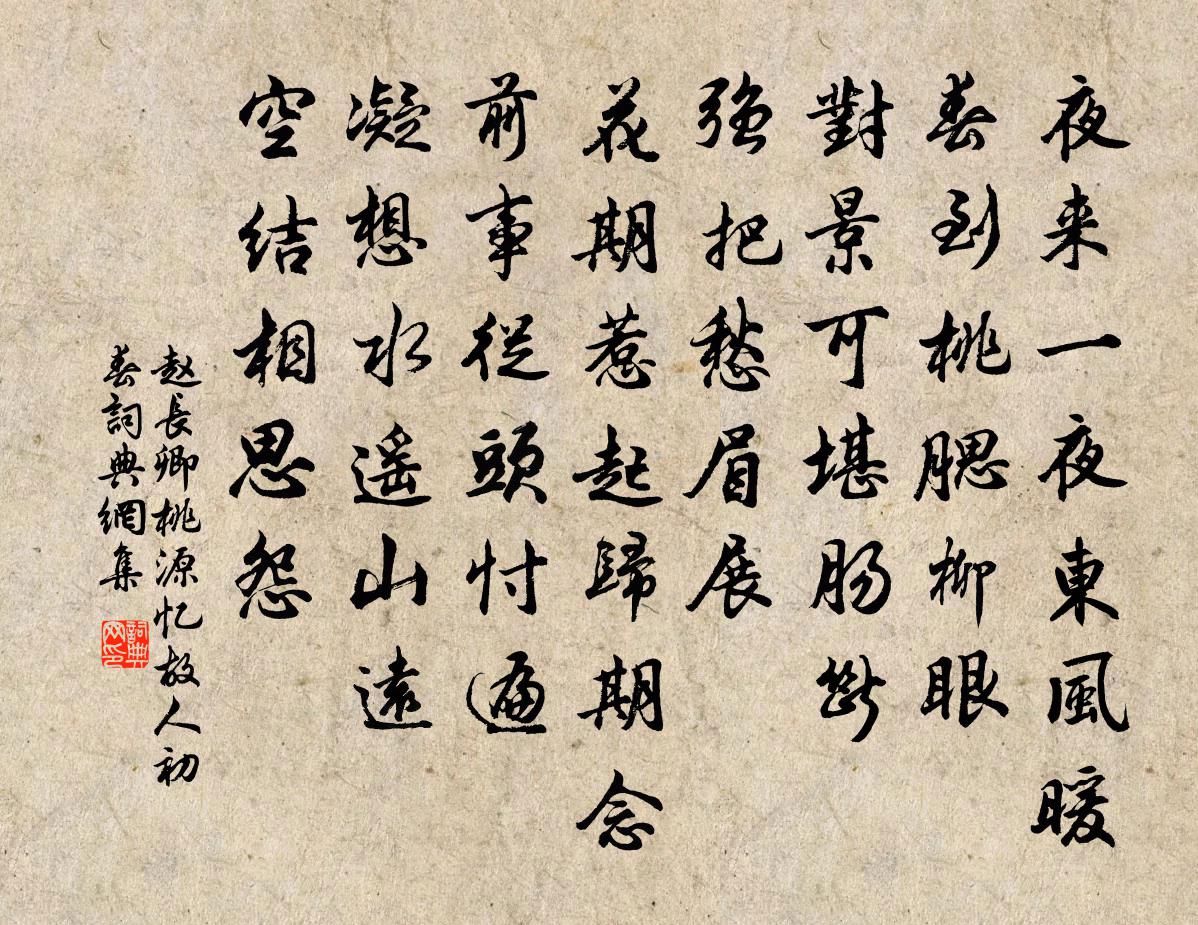 夜来一夜東風暖
春到桃腮柳眼
對景可堪腸斷
強把愁眉展
花期惹起歸期念
前事從頭忖遍
凝想水遥山遠
空結相思怨
赵長卿桃源忆故人初
春詞典網集
詞典
网印